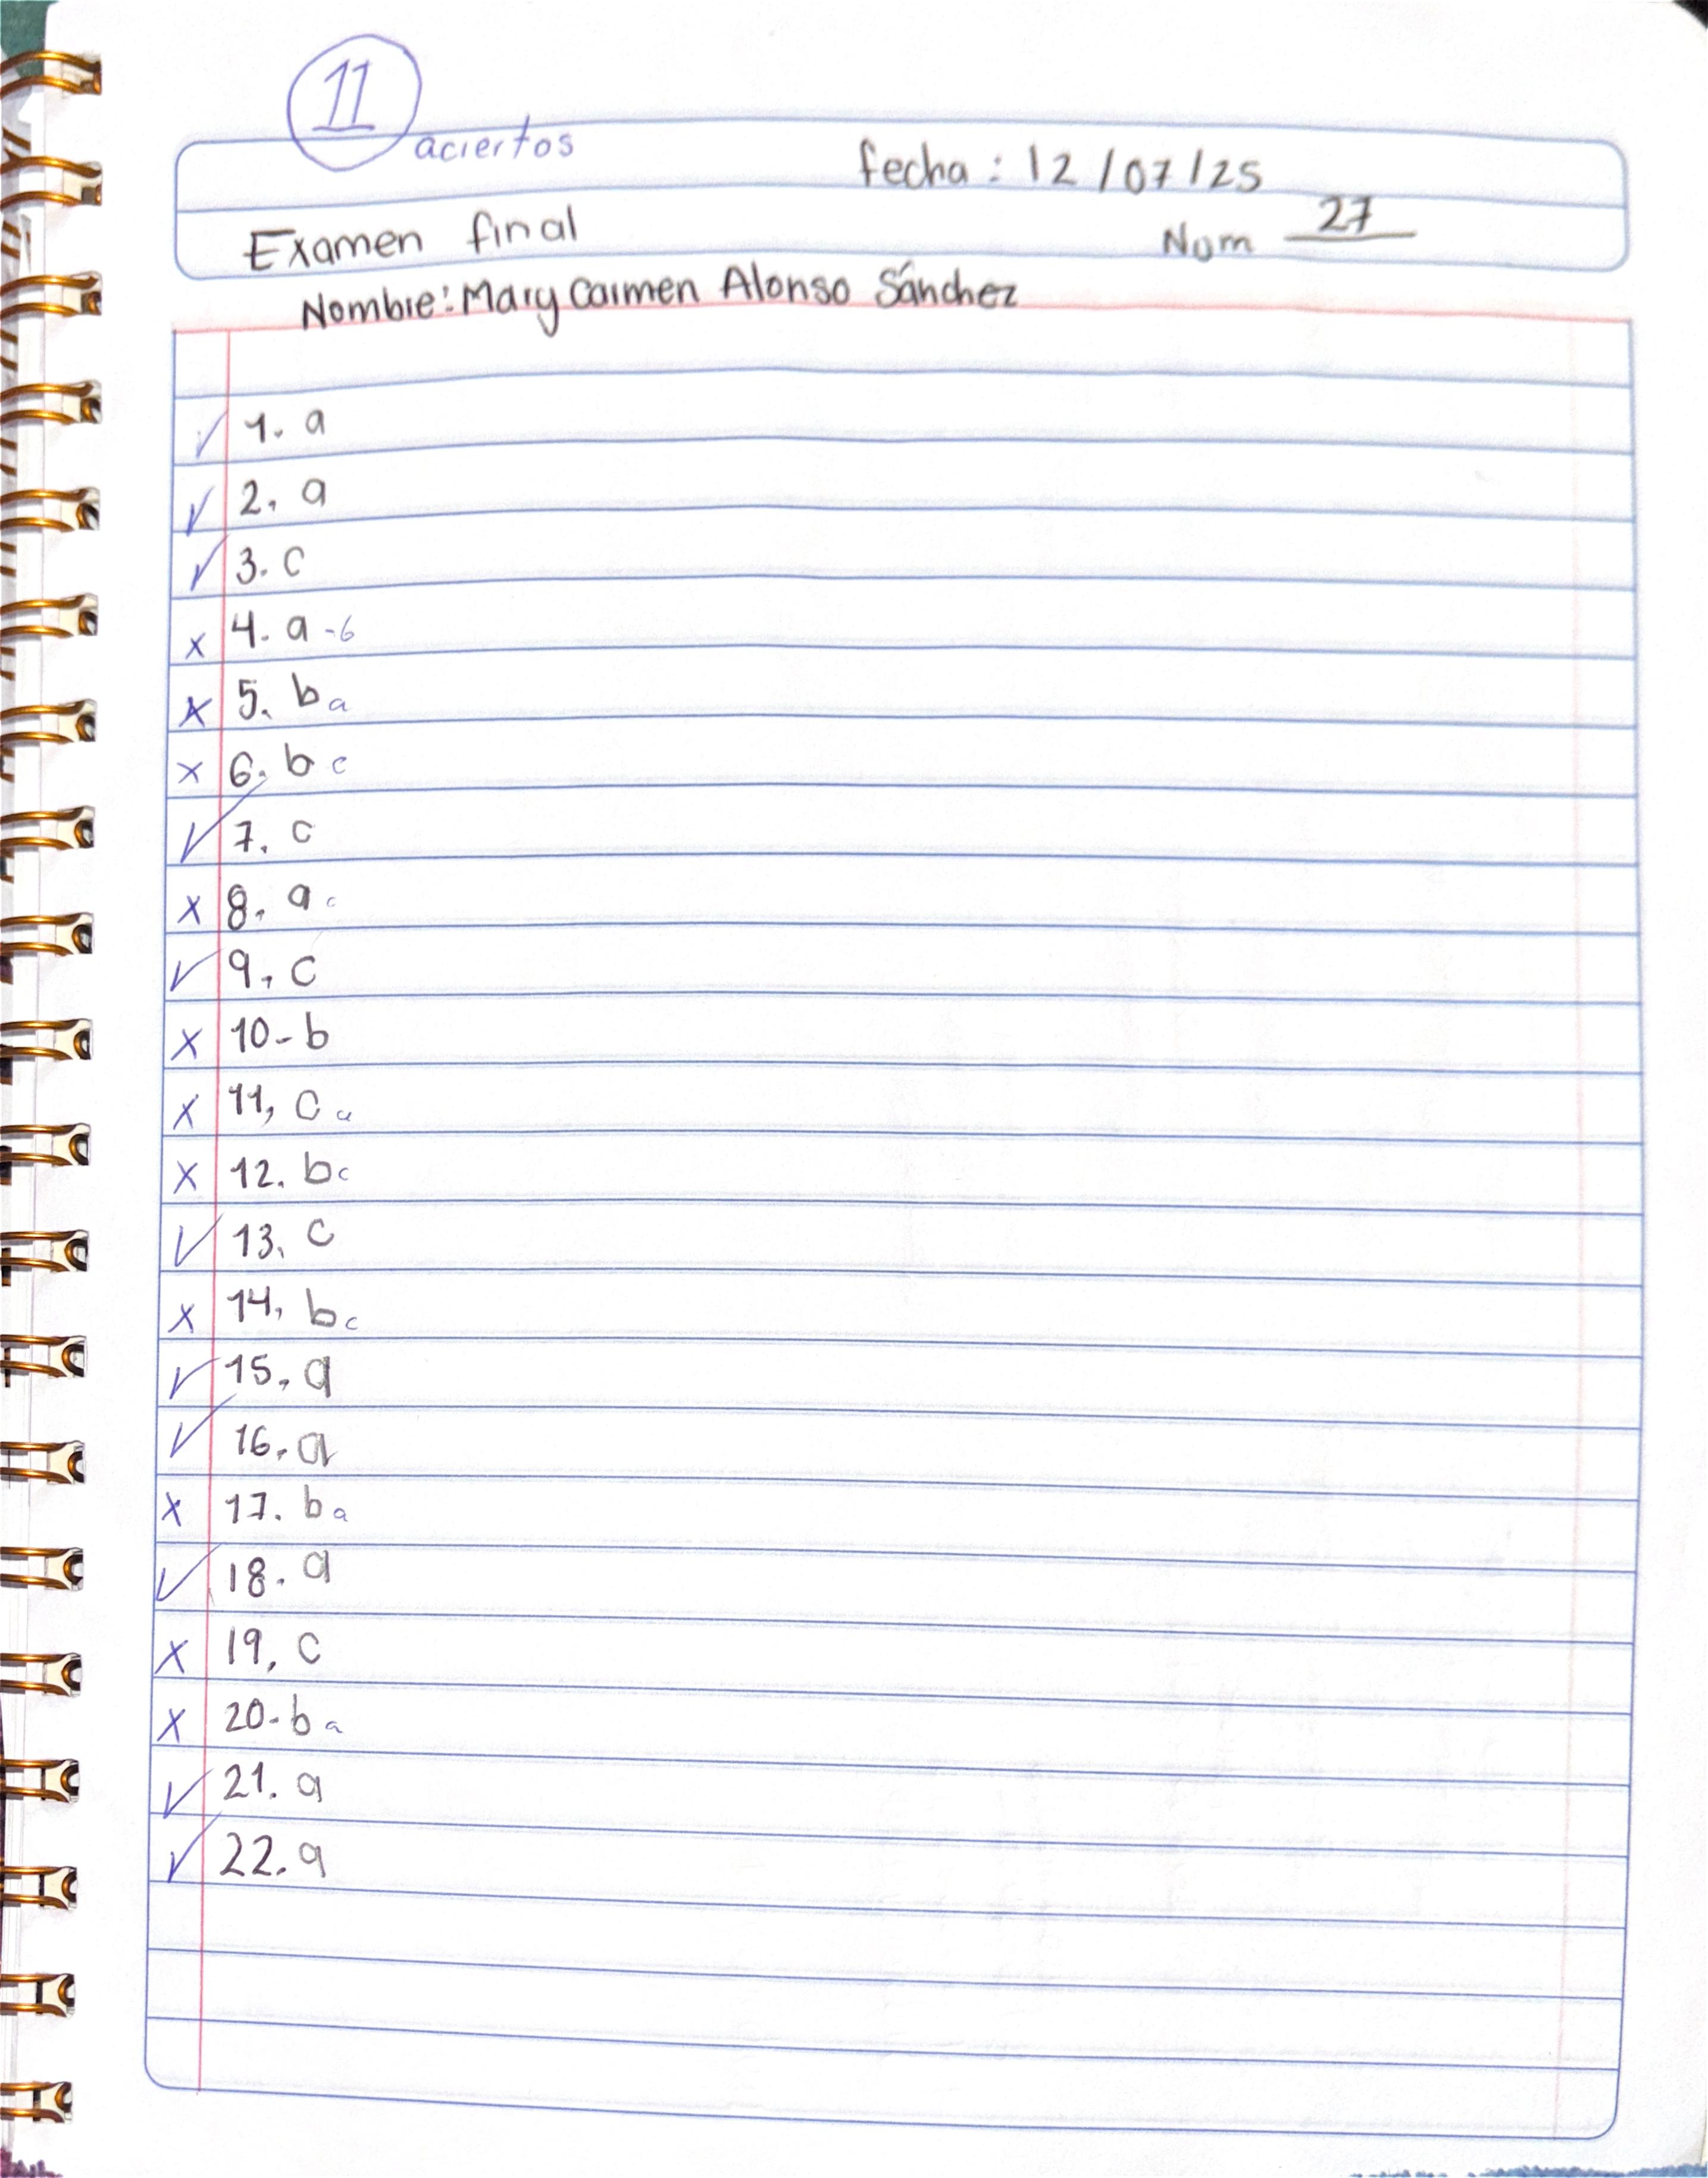 11
aciertos
fecha: 12/07/25
Examen final
Num 27
Nombre: Mary Carmen Alonso Sánchez
✓ 1. a
✓ 2. a
✓ 3. c
x 4. a -b
x 5. b a
x 6. b c
✓ 7. c
x 8. a c
✓ 9. c
x 10- b
x 11, c a
x 12. b c
✓ 13. c
x 14, b c
✓ 15. a
✓ 16. a
x 17. b a
✓ 18. a
x 19, c
x 20- b a
✓ 21. a
✓ 22. a